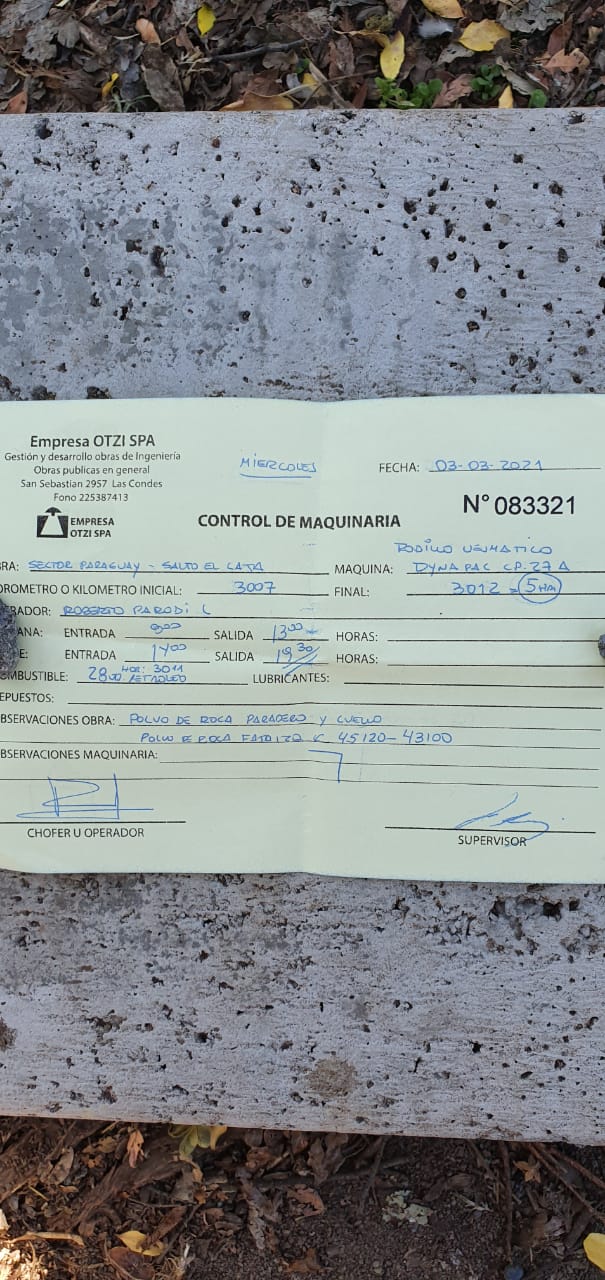 Empresa OTZI SPA
Gestión y desarrollo obras de Ingeniería
Obras publicas en general
San Sebastian 2957 Las Condes
Fono 225387413
EMPRESA
OTZI SPA
MIERCOLES
FECHA: 03-03-2021
N° 083321
CONTROL DE MAQUINARIA
RODILLO NEUMATICO
BRA: SECTOR PARAGUAY - SALTO EL LAJA MAQUINA: DYNAPAC CP.27 A
OROMETRO O KILOMETRO INICIAL: 3007 FINAL: 3012 = 5 HRS
RADOR: ROBERTO PARODI L
ANA: ENTRADA 900 SALIDA 1300 HORAS:
E: ENTRADA 1400 SALIDA 1930 HORAS:
HOR: 3011
MBUSTIBLE: PETROLEO LUBRICANTES:
EPUESTOS:
BSERVACIONES OBRA: POLVO DE ROCA PARADERO Y
POLVO DE ROCA K 45120 - 43100
BSERVACIONES MAQUINARIA:
CHOFER U OPERADOR
SUPERVISOR